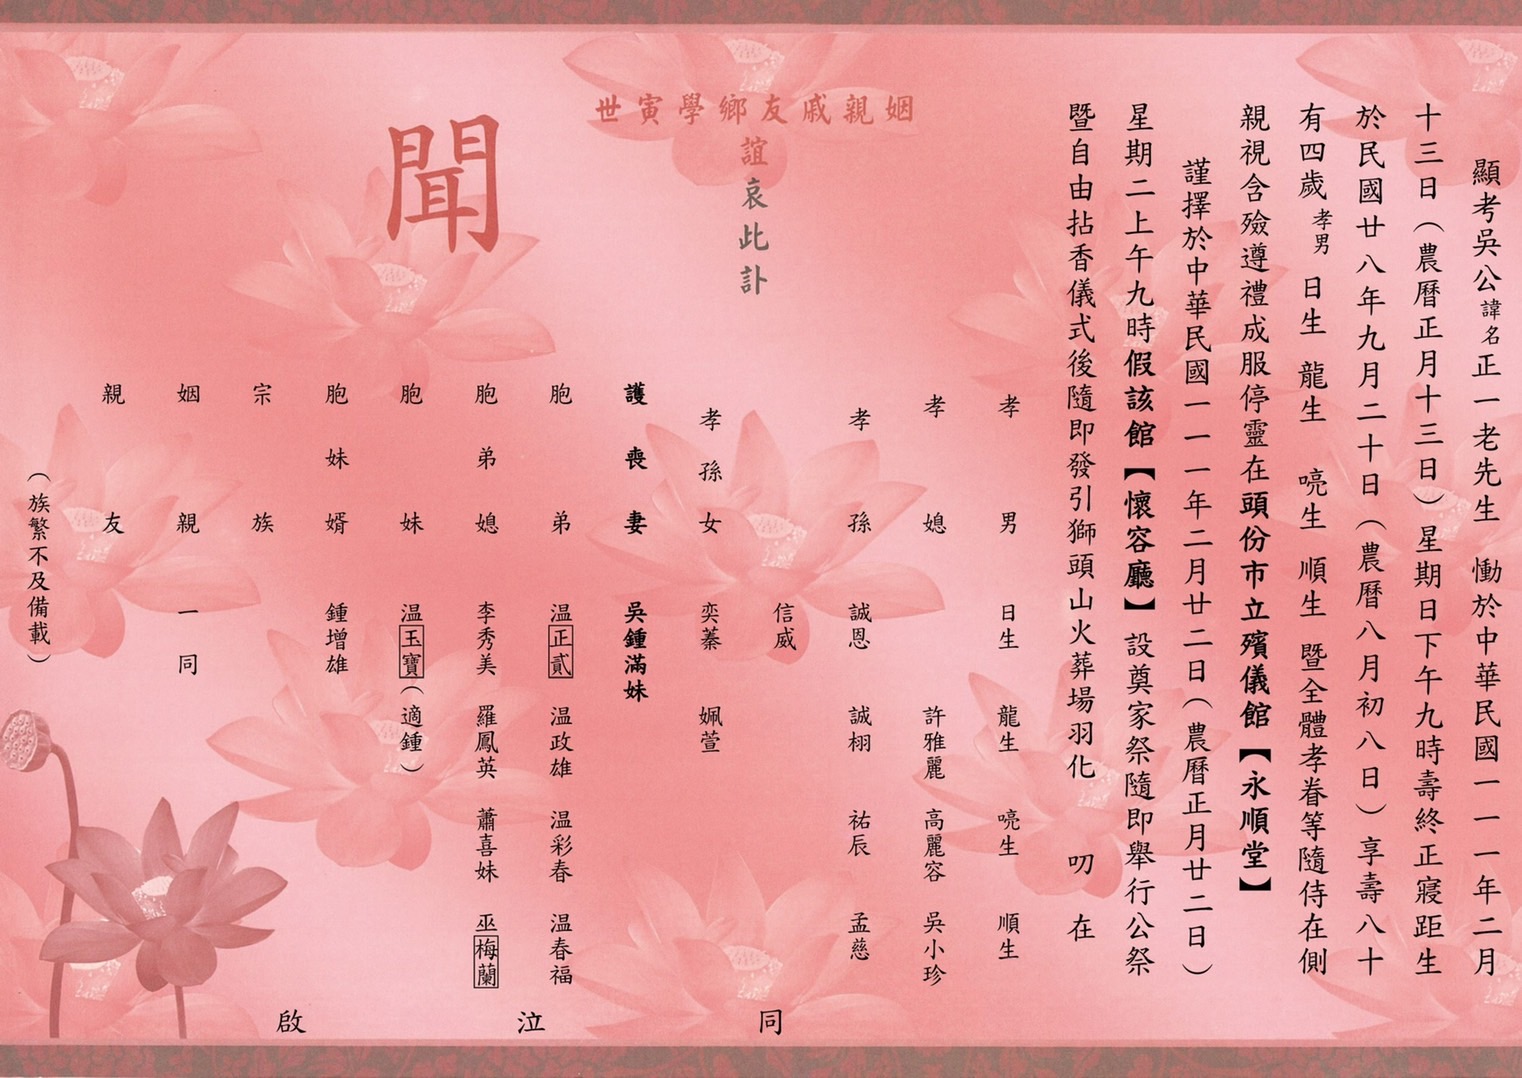 顯考吳公諱名正一老先生 慟於中華民國一一一年二月
十三日（農曆正月十三日）星期日下午九時壽終正寢距生
於民國廿八年九月二十日（農曆八月初八日）享壽八十
有四歲孝男 日生 龍生 喨生 順生 暨全體孝眷等隨侍在側
親視含殮遵禮成服停靈在頭份市立殯儀館【永順堂】
謹擇於中華民國一一一年二月廿二日（農曆正月廿二日）
星期二上午九時假該館【懷容廳】設奠家祭隨即舉行公祭
暨自由拈香儀式後隨即發引獅頭山火葬場羽化 叨 在
姻親戚友鄉學寅世
誼哀此訃
聞
孝男 日生 龍生 喨生 順生
孝媳 許雅麗 高麗容 吳小珍
孝孫 誠恩 誠栩 祐辰 孟慈
信威
孝孫女 奕蓁 姵萱
護喪妻 吳鍾滿妹
胞弟 温正貳 温政雄 温彩春 温春福
胞弟媳 李秀美 羅鳳英 蕭喜妹 巫梅蘭
胞妹 温玉寶（適鍾）
胞妹婿 鍾增雄
宗族
姻親 一同
親友
（族繁不及備載）
同泣啟